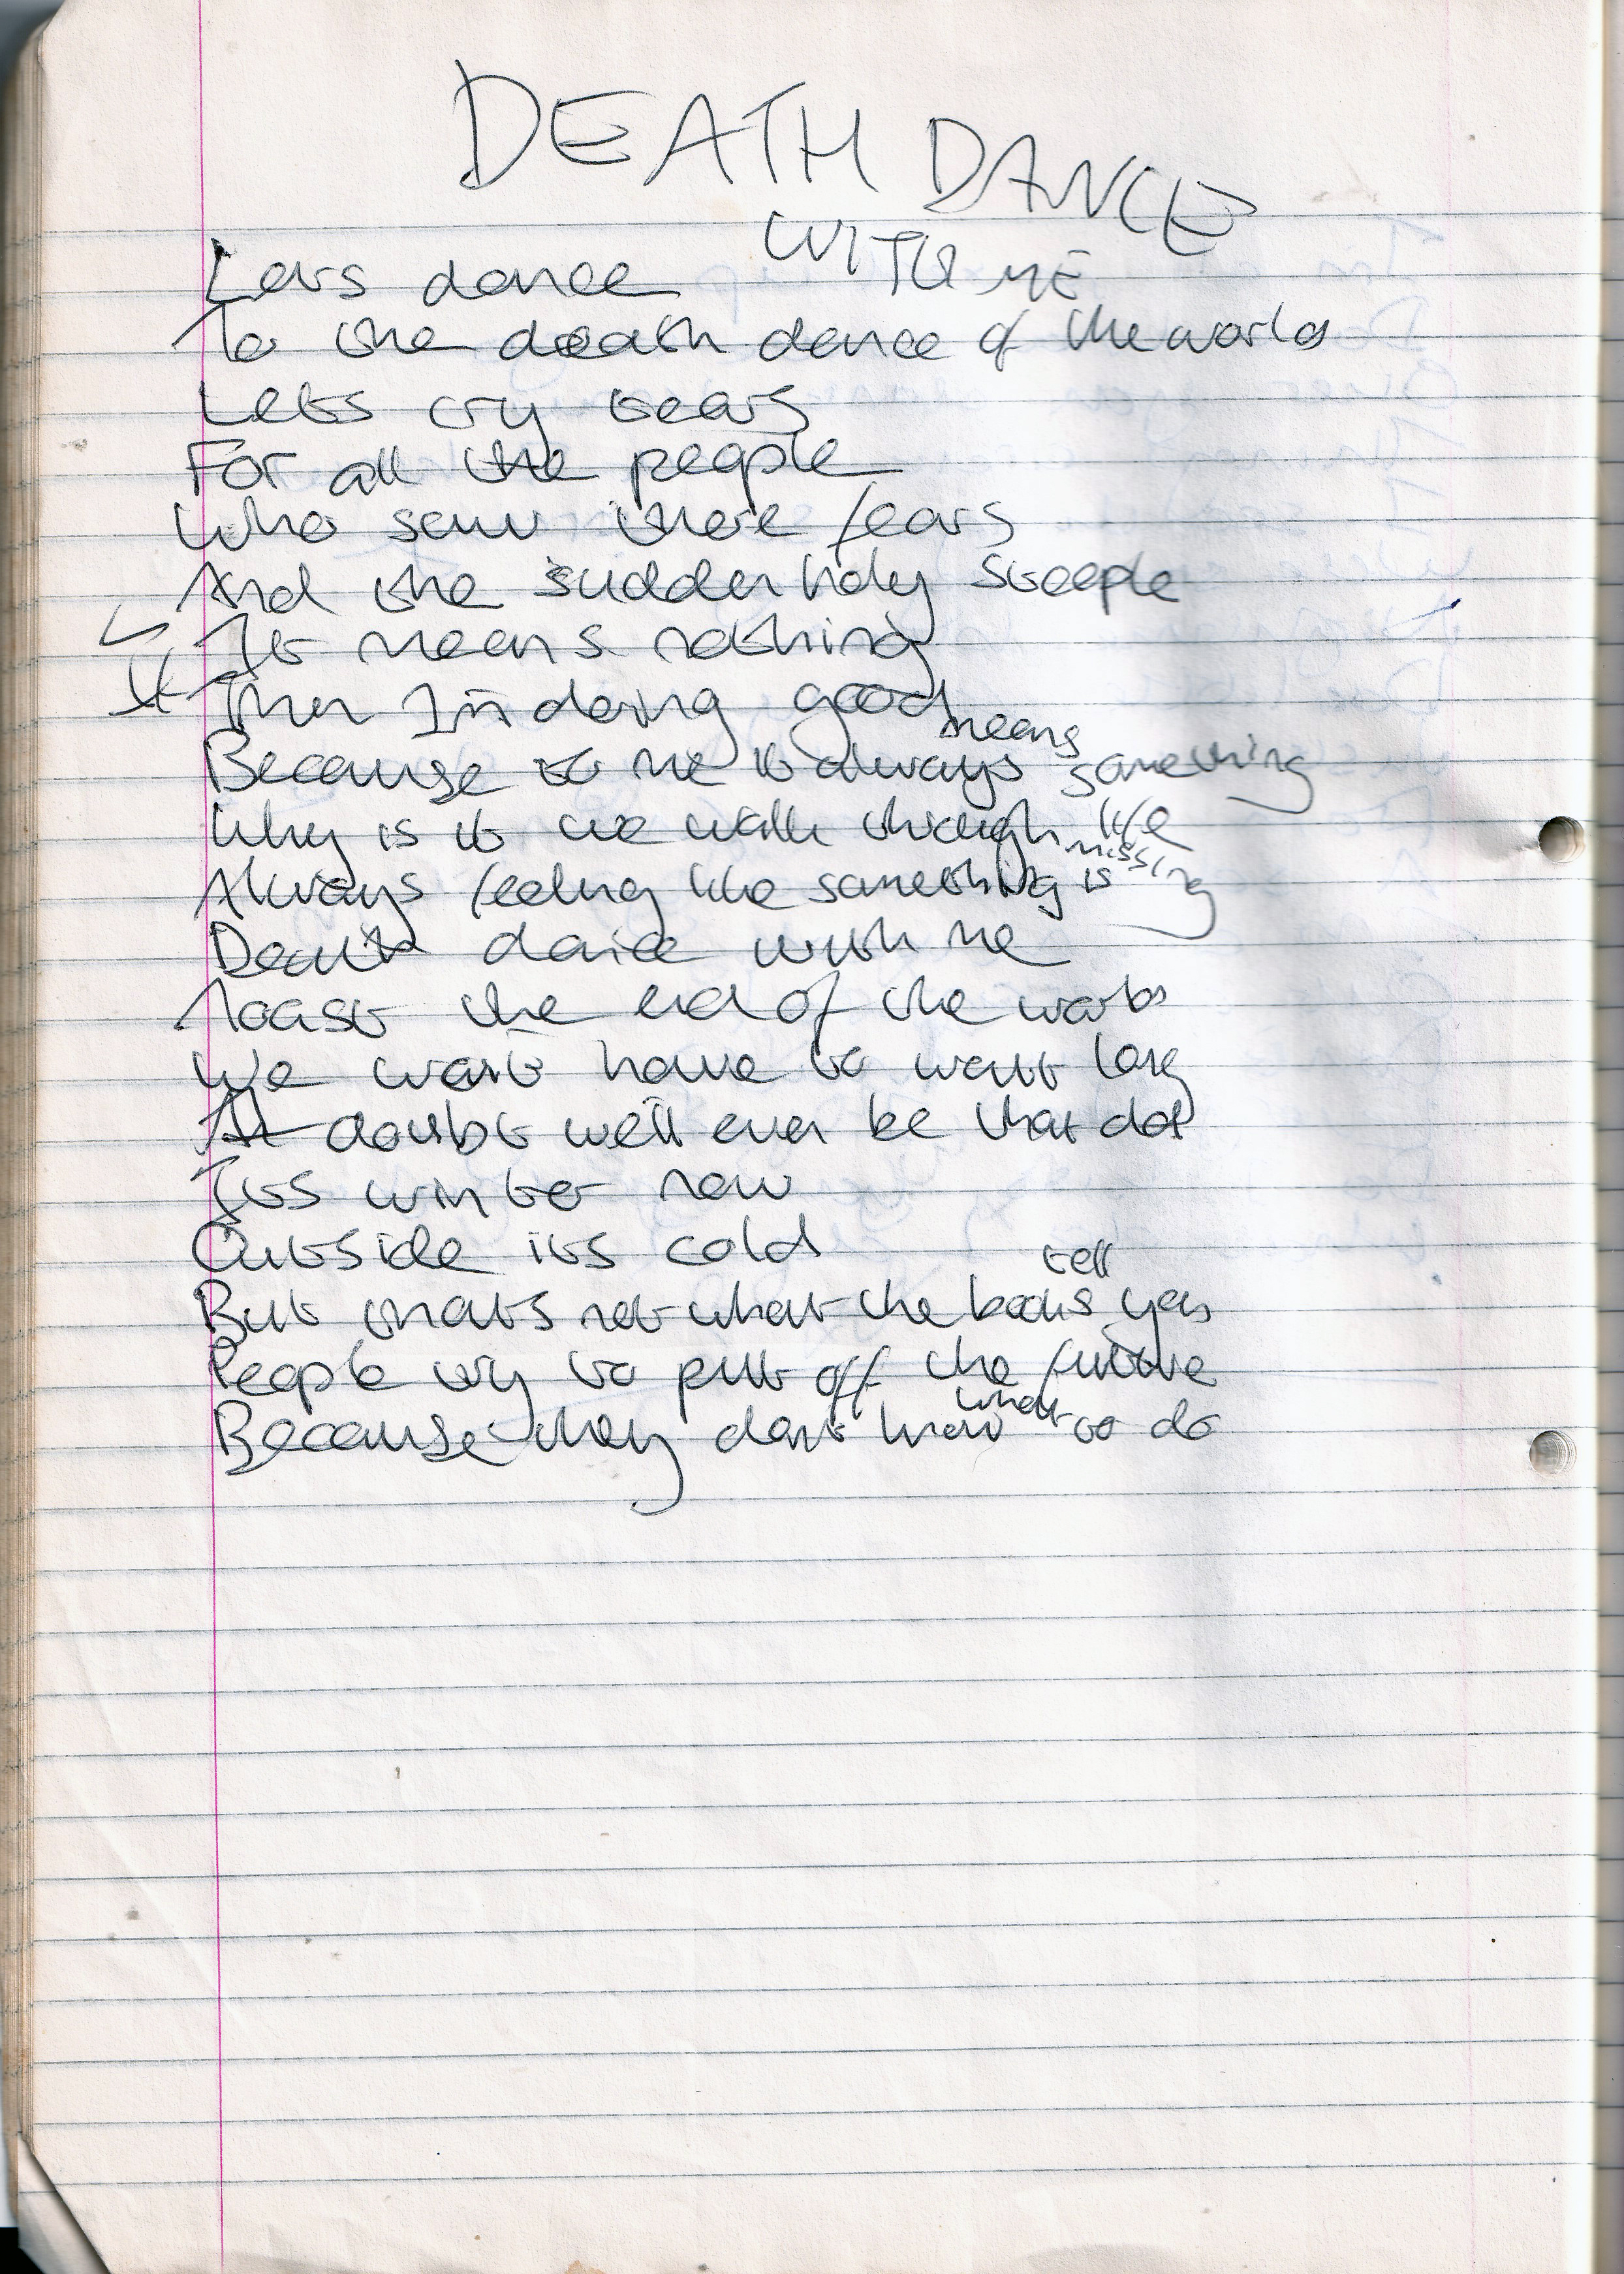 DEATH DANCE
WITH ME
Lets dance
To the death dance of the world
Lets cry tears
For all the people
Who saw there fears
And the sudden holy steeple
It means nothing
Then Im doing good
Because to me it always means something
Why is it we walk through life
Always feeling like something is missing
Death dance with me
Toast the end of the world
We wont have to wait long
doubt we'll ever be that old
Its winter now
Outside its cold
But thats not what the books tell you
People try to put off the future
Because they dont know what to do